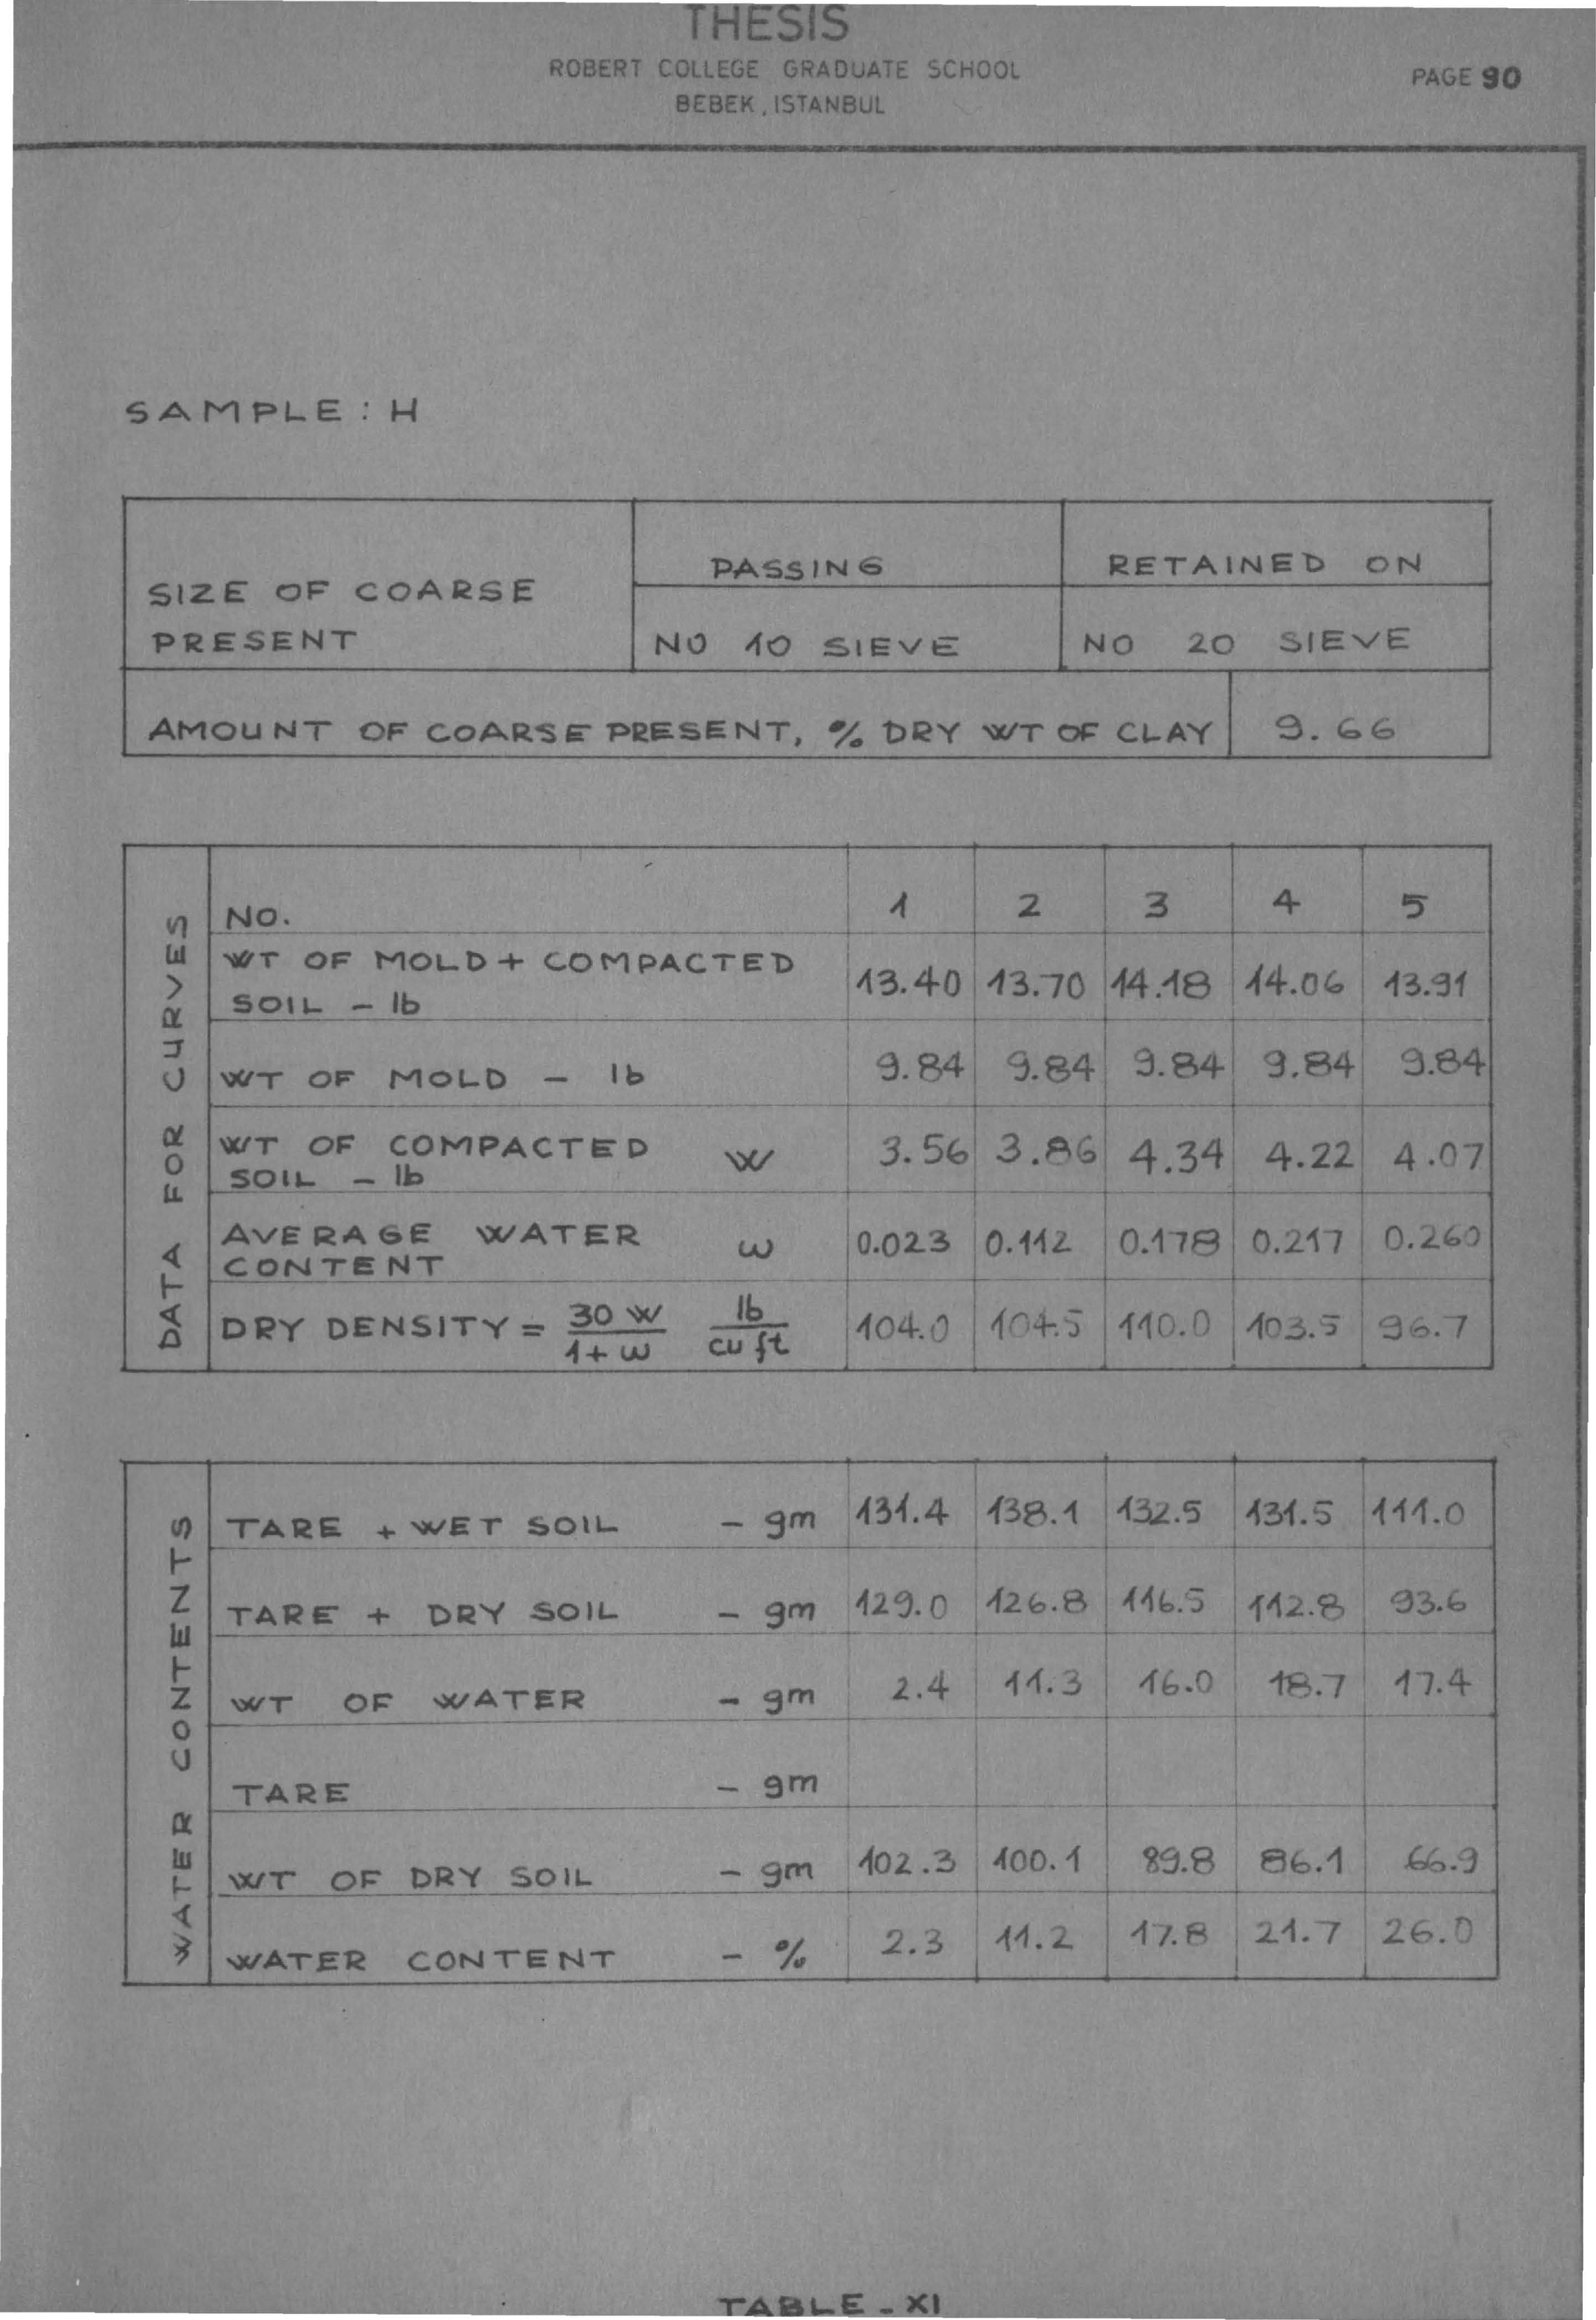 THESIS
ROBERT COLLEGE GRADUATE SCHOOL
BEBEK, ISTANBUL
PAGE 90
SAMPLE : H
SIZE OF COARSE PRESENT PASSING RETAINED ON
NO 10 SIEVE NO 20 SIEVE
AMOUNT OF COARSE PRESENT, % DRY WT OF CLAY 9.66
DATA FOR CURVES
No. 1 2 3 4 5
WT OF MOLD + COMPACTED
SOIL - lb 13.40 13.70 14.18 14.06 13.91
WT OF MOLD - lb 9.84 9.84 9.84 9.84 9.84
WT OF COMPACTED
SOIL - lb W 3.56 3.86 4.34 4.22 4.07
AVERAGE WATER
CONTENT ω 0.023 0.112 0.178 0.217 0.260
DRY DENSITY = 30 W / 1 + ω lb / cu ft 104.0 104.5 110.0 103.5 96.7
WATER CONTENTS
TARE + WET SOIL - gm 131.4 138.1 132.5 131.5 111.0
TARE + DRY SOIL - gm 129.0 126.8 116.5 112.8 93.6
WT OF WATER - gm 2.4 11.3 16.0 18.7 17.4
TARE - gm
WT OF DRY SOIL - gm 102.3 100.1 89.8 86.1 66.9
WATER CONTENT - % 2.3 11.2 17.8 21.7 26.0
TABLE - XI